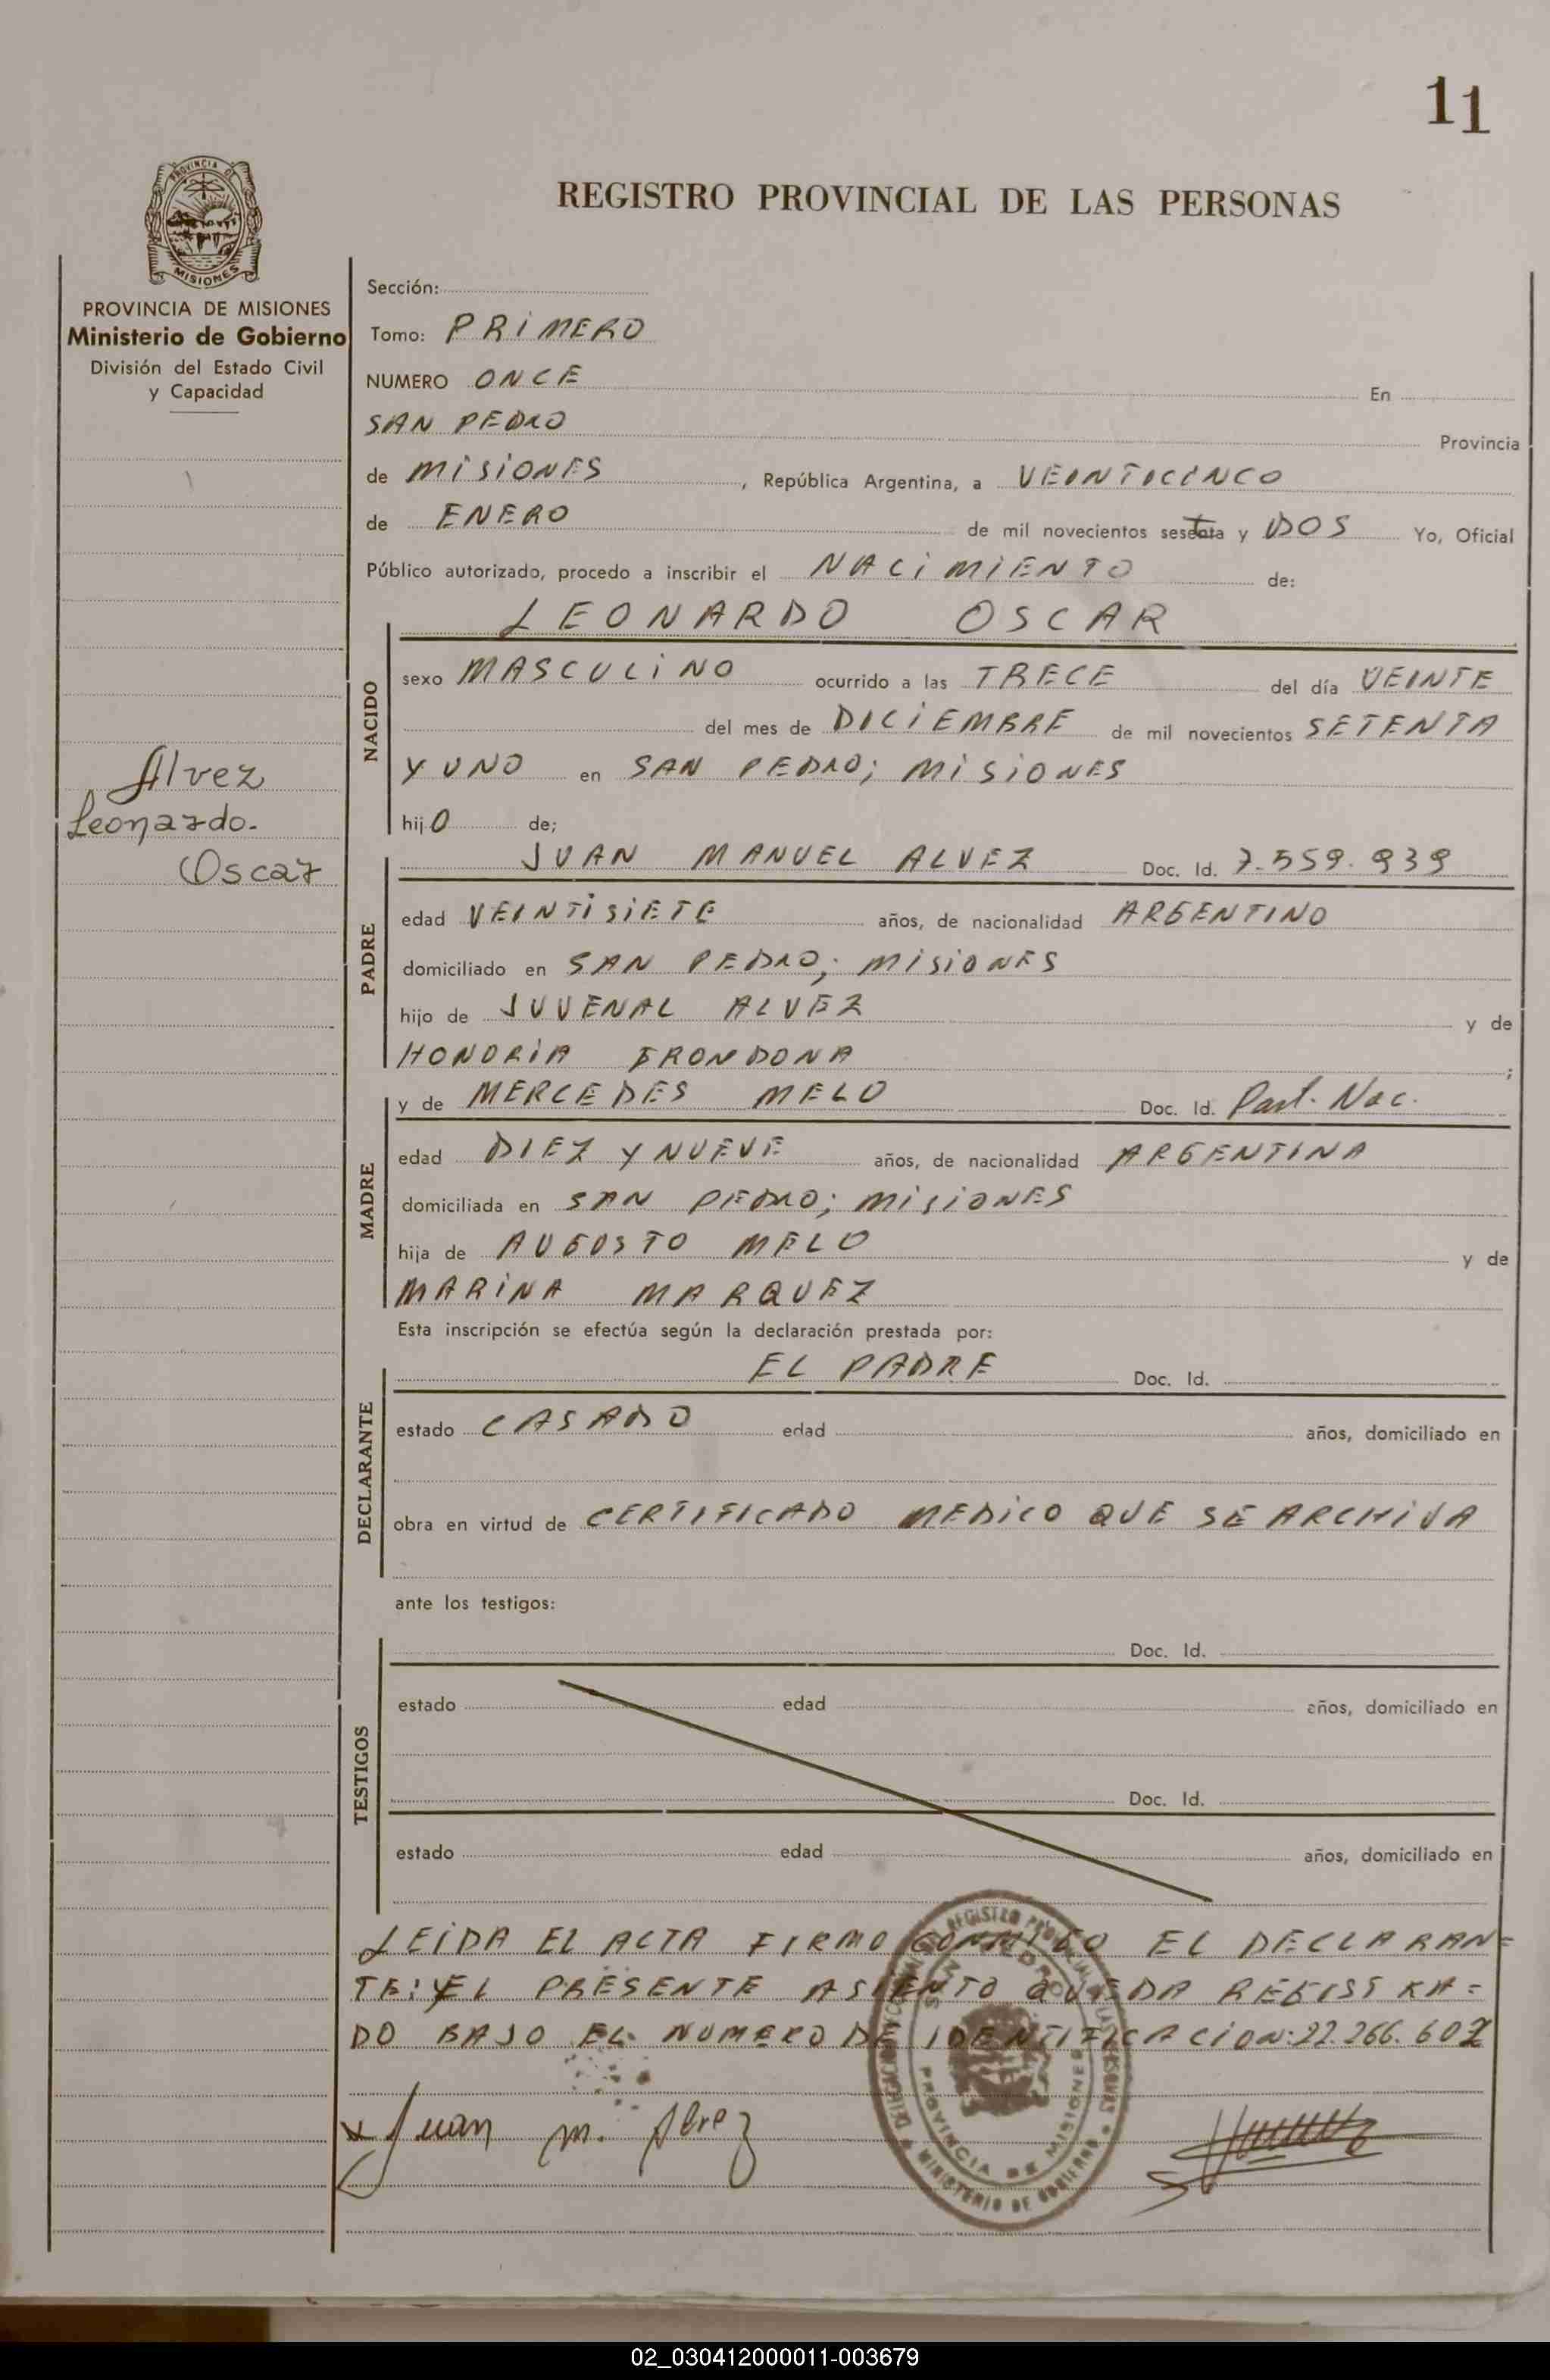 11
PROVINCIA DE
MISIONES
REGISTRO PROVINCIAL DE LAS PERSONAS
PROVINCIA DE MISIONES
Ministerio de Gobierno
División del Estado Civil
y Capacidad
Alvez
Leonardo.
Oscar
Sección:
Tomo: PRIMERO
NUMERO ONCE En
SAN PEDRO Provincia
de MISIONES, República Argentina, a VEINTICINCO
de ENERO de mil novecientos setenta y DOS Yo, Oficial
Público autorizado, procedo a inscribir el NACIMIENTO de:
LEONARDO OSCAR
NACIDO
sexo MASCULINO ocurrido a las TRECE del día VEINTE
del mes de DICIEMBRE de mil novecientos SETENTA
Y UNO en SAN PEDRO; MISIONES
hijO de;
JUAN MANUEL ALVEZ Doc. Id. 7.559.939
PADRE
edad VEINTISIETE años, de nacionalidad ARGENTINO
domiciliado en SAN PEDRO; MISIONES
hijo de JUVENAL ALVEZ y de
HONORIA FRONDONA;
y de MERCEDES MELO Doc. Id. Part. Nac.
MADRE
edad DIEZ Y NUEVE años, de nacionalidad ARGENTINA
domiciliada en SAN PEDRO; MISIONES
hija de AUGUSTO MELO y de
MARINA MARQUEZ
Esta inscripción se efectúa según la declaración prestada por:
EL PADRE Doc. Id.
DECLARANTE
estado CASADO edad años, domiciliado en
obra en virtud de CERTIFICADO MEDICO QUE SE ARCHIVA
ante los testigos:
Doc. Id.
TESTIGOS
estado edad años, domiciliado en
Doc. Id.
estado edad años, domiciliado en
LEIDA EL ACTA FIRMO CONMIGO EL DECLARAN=
TE: Y EL PRESENTE ASIENTO QUEDA REGISTRA=
DO BAJO EL NUMERO DE IDENTIFICACION: 22.266.602
Juan m. Alvez
SAN PEDRO
PROVINCIA DE MISIONES
MINISTERIO DE GOBIERNO
02_030412000011-003679